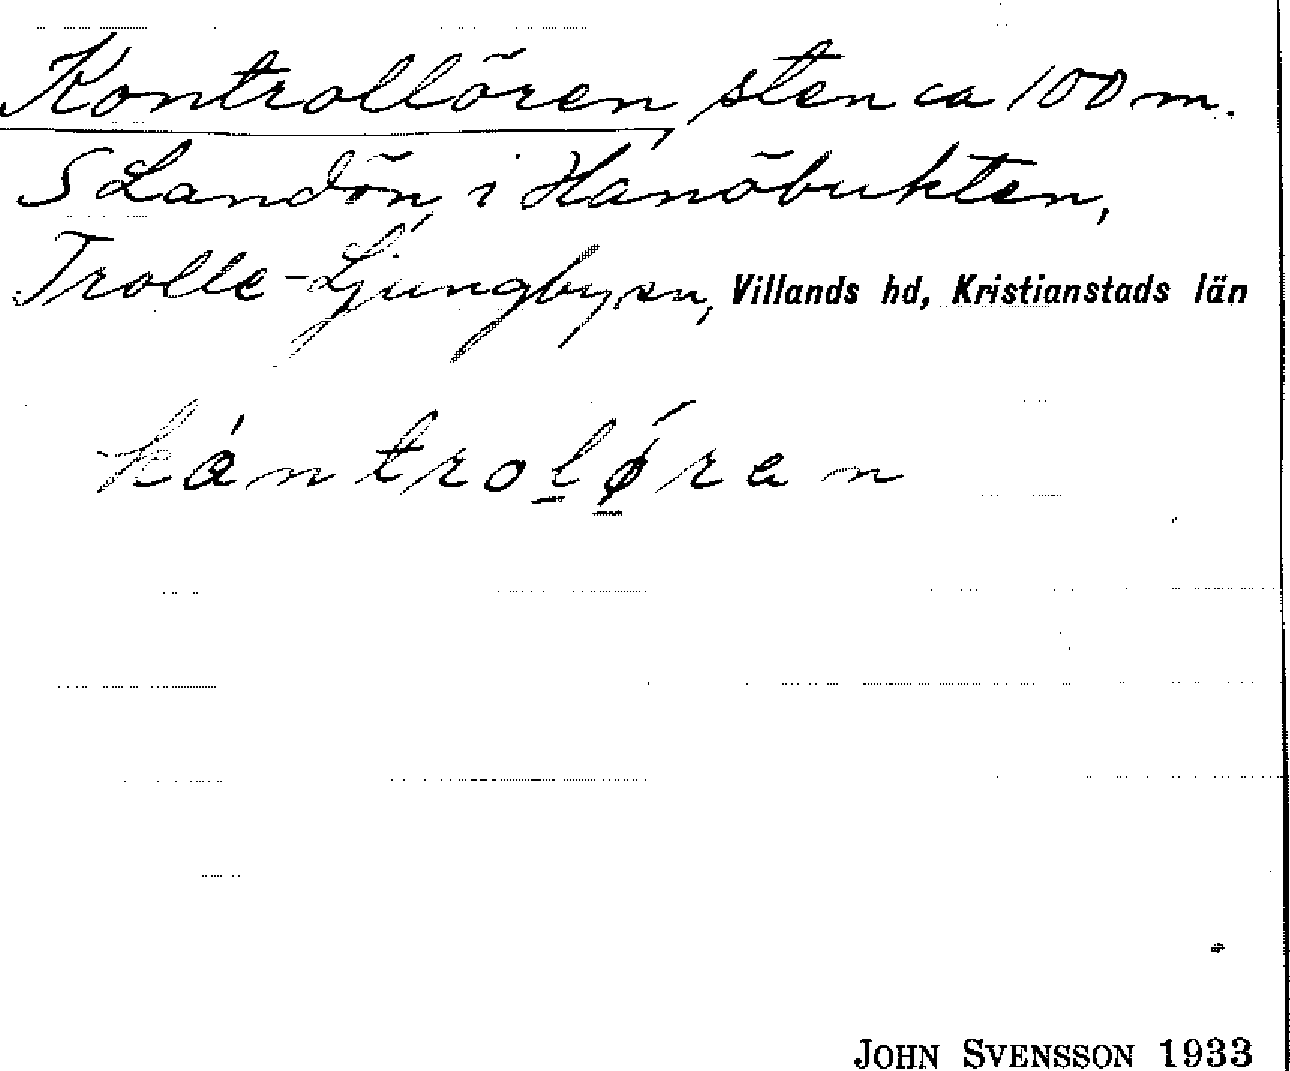 Kontrollören, sten ca 100 m.
S Landön, i Hanöbukten,
Trolle-Ljungby sn, Villands hd, Kristianstads län
kántrolǿran
JOHN SVENSSON 1933